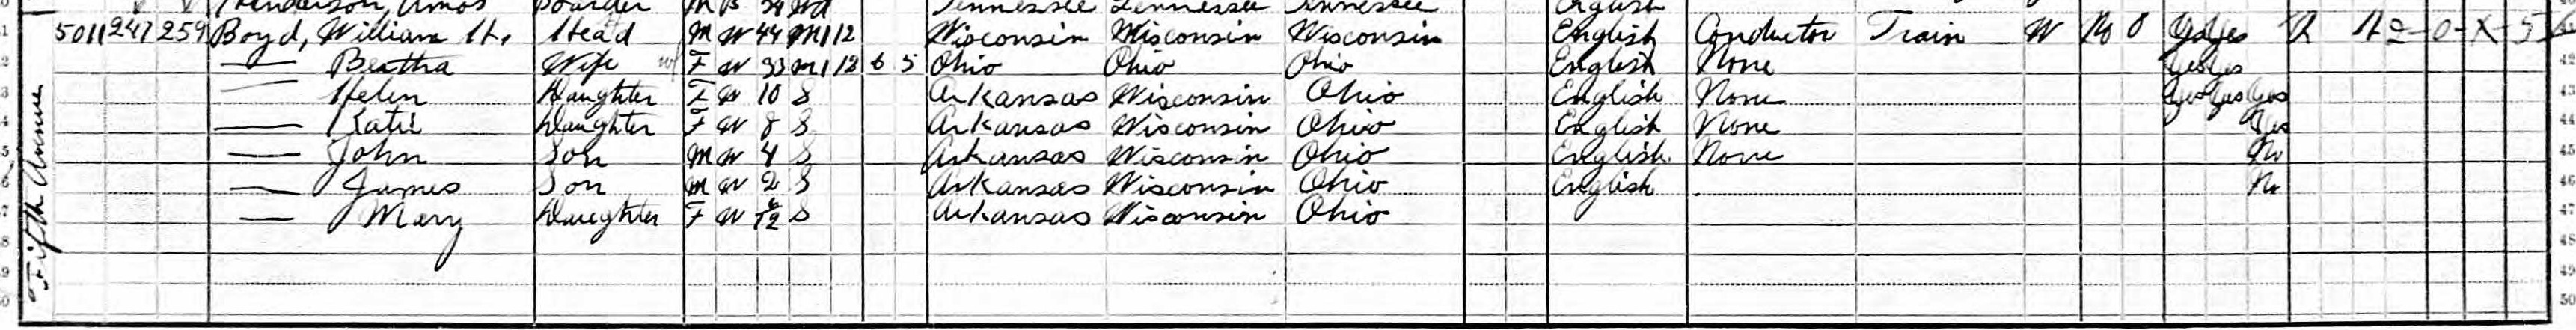 Henderson, Amos Boarder M B Wd Tennessee Tennessee Tennessee English
5011 247 259 Boyd, William H. Head M W 44 M1 12 Wisconsin Wisconsin Wisconsin English Conductor Train W No 0 Yes Yes R H 2-0-X-5
— Bertha Wife F W 33 M1 12 6 5 Ohio Ohio Ohio English None Yes Yes 42
— Helen Daughter F W 10 S Arkansas Wisconsin Ohio English None Yes Yes Yes 43
— Katie Daughter F W 8 S Arkansas Wisconsin Ohio English None Yes 44
— John Son M W 4 S Arkansas Wisconsin Ohio English None No 45
— James Son M W 2 S Arkansas Wisconsin Ohio English No 46
— Mary Daughter F W /12 S Arkansas Wisconsin Ohio 47
48
49
50
Fifth Avenue